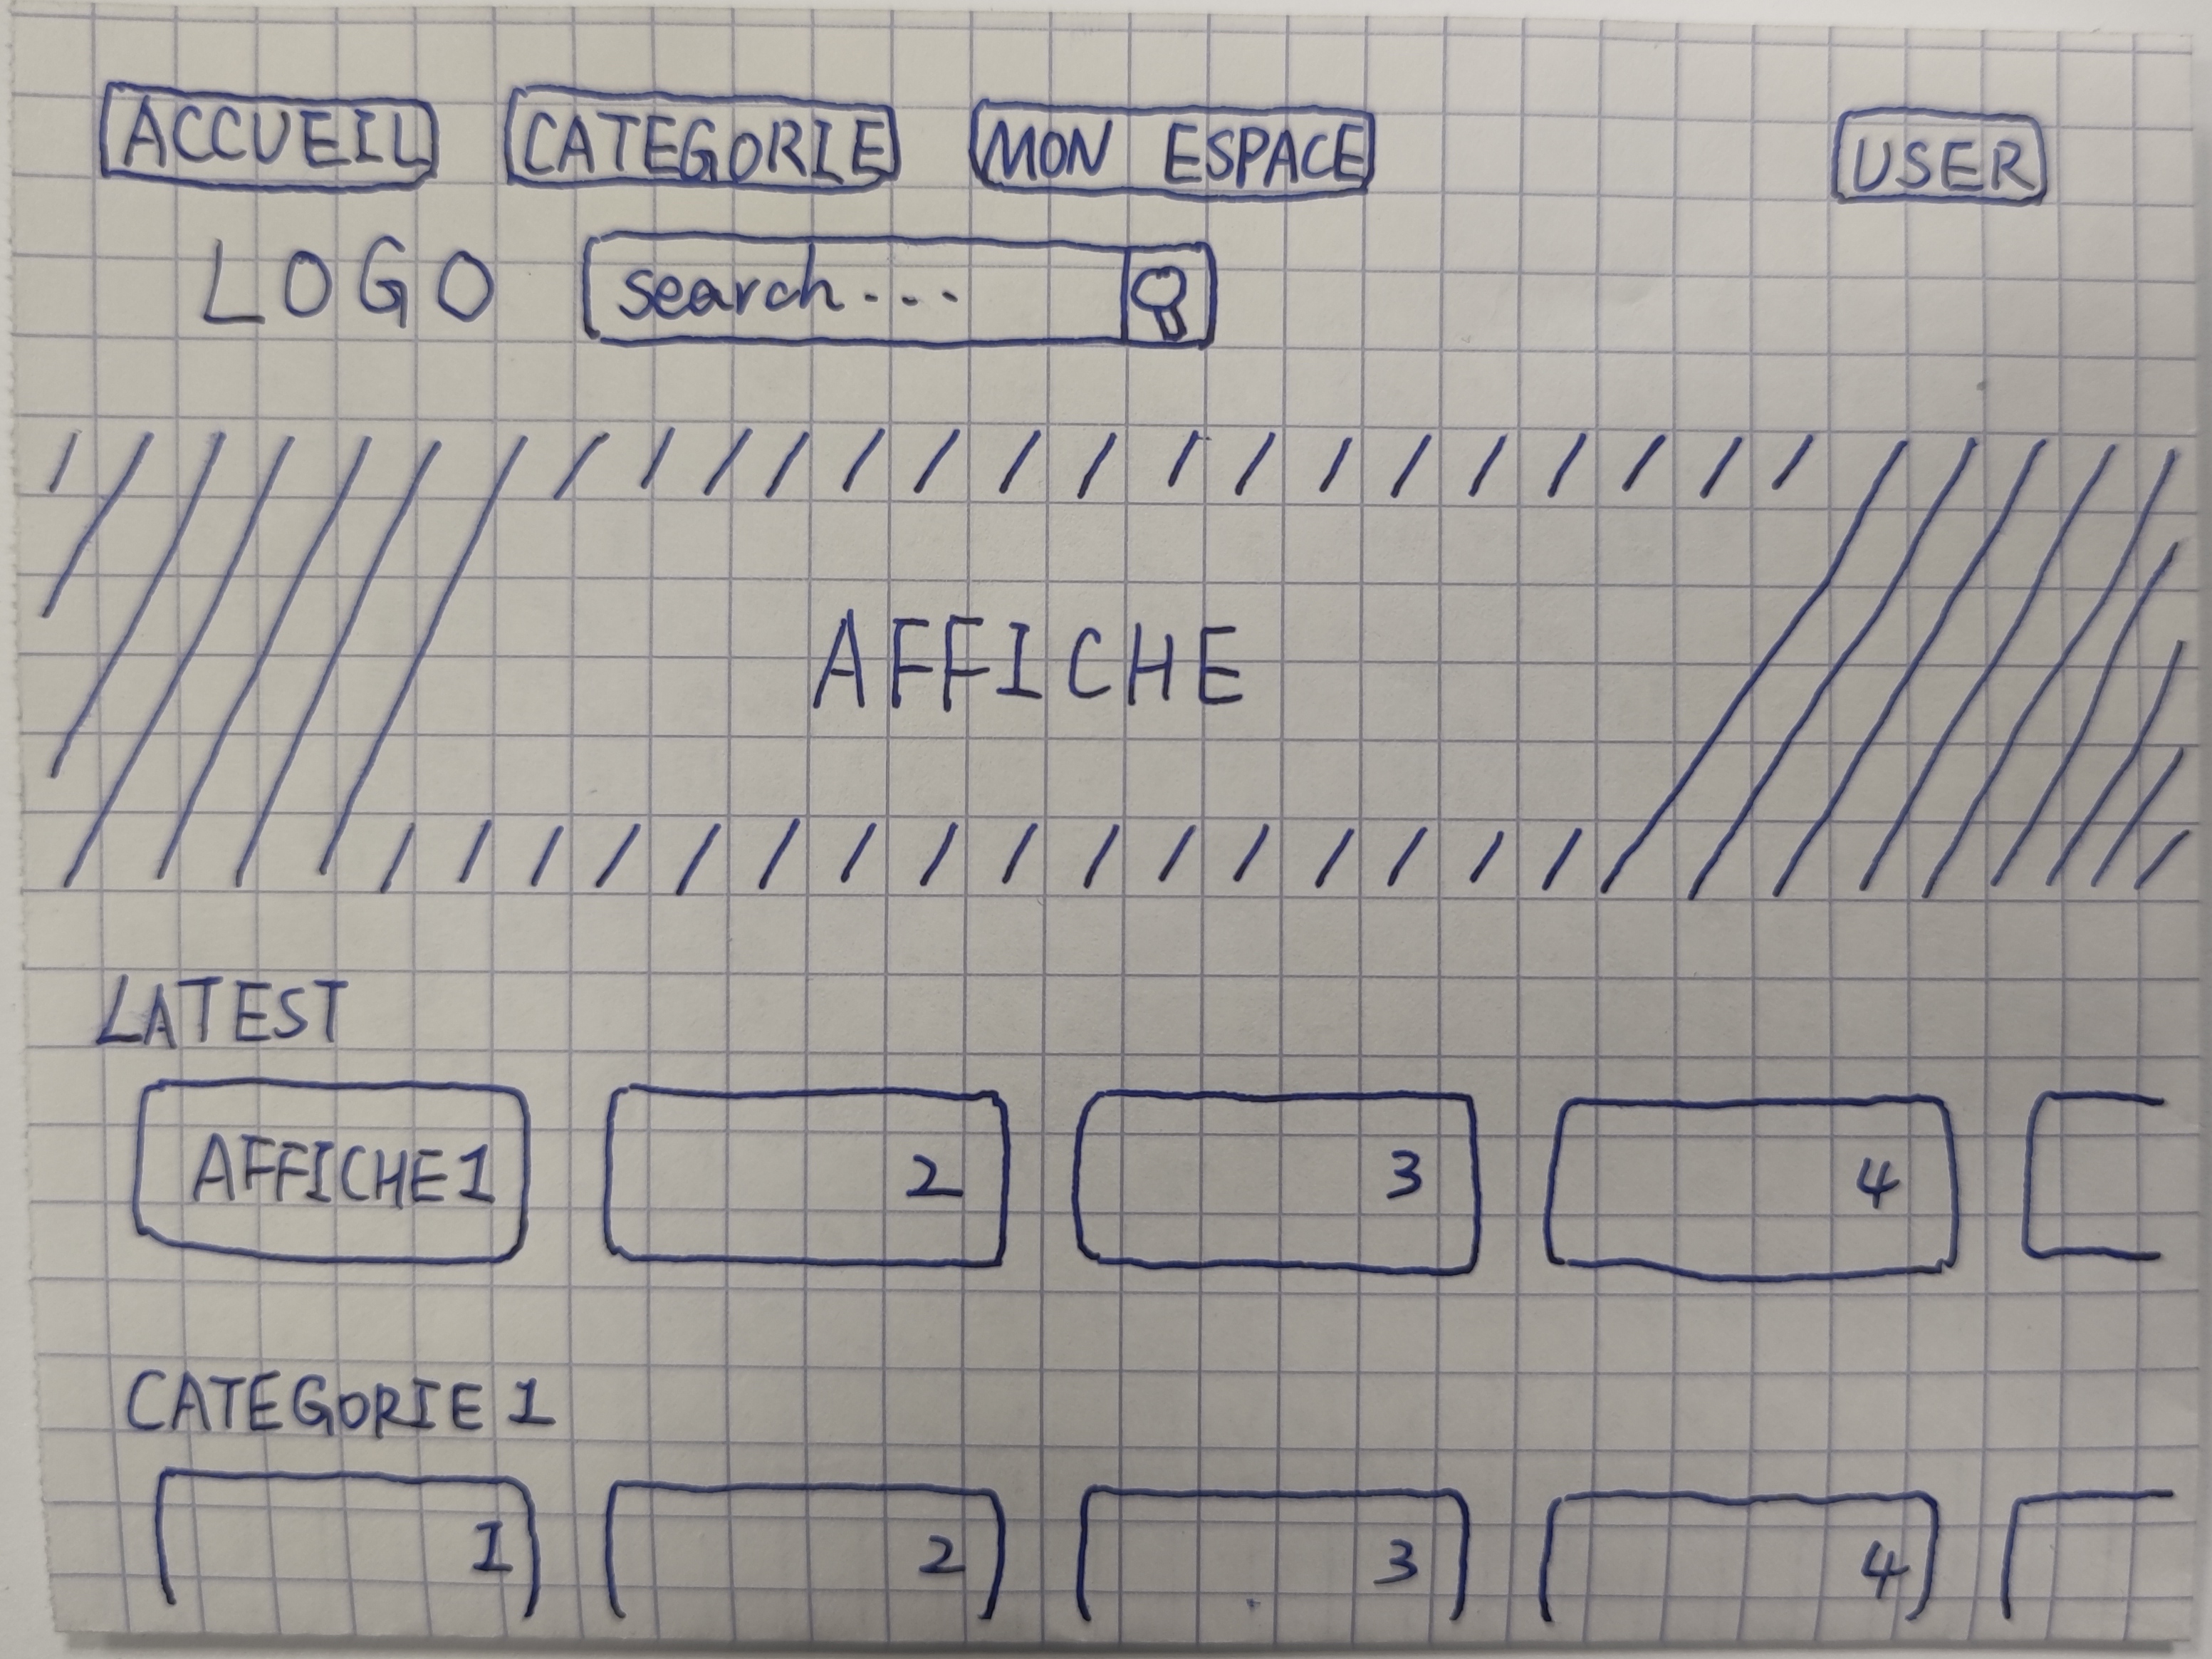 ACCUEIL CATEGORIE MON ESPACE USER
LOGO search...
AFFICHE
LATEST
AFFICHE1 2 3 4
CATEGORIE 1
1 2 3 4